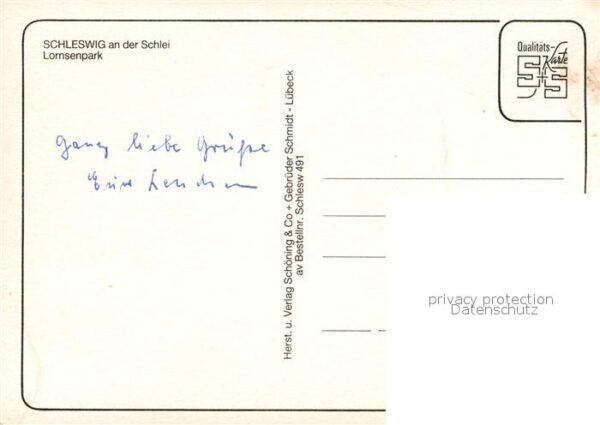 SCHLESWIG an der Schlei
Lornsenpark
Qualitäts-
Karte
S+S
Ganz liebe Grüße
Herst. u. Verlag Schöning & Co + Gebrüder Schmidt - Lübeck
av Bestellnr. Schlesw 491
privacy protection
Datenschutz